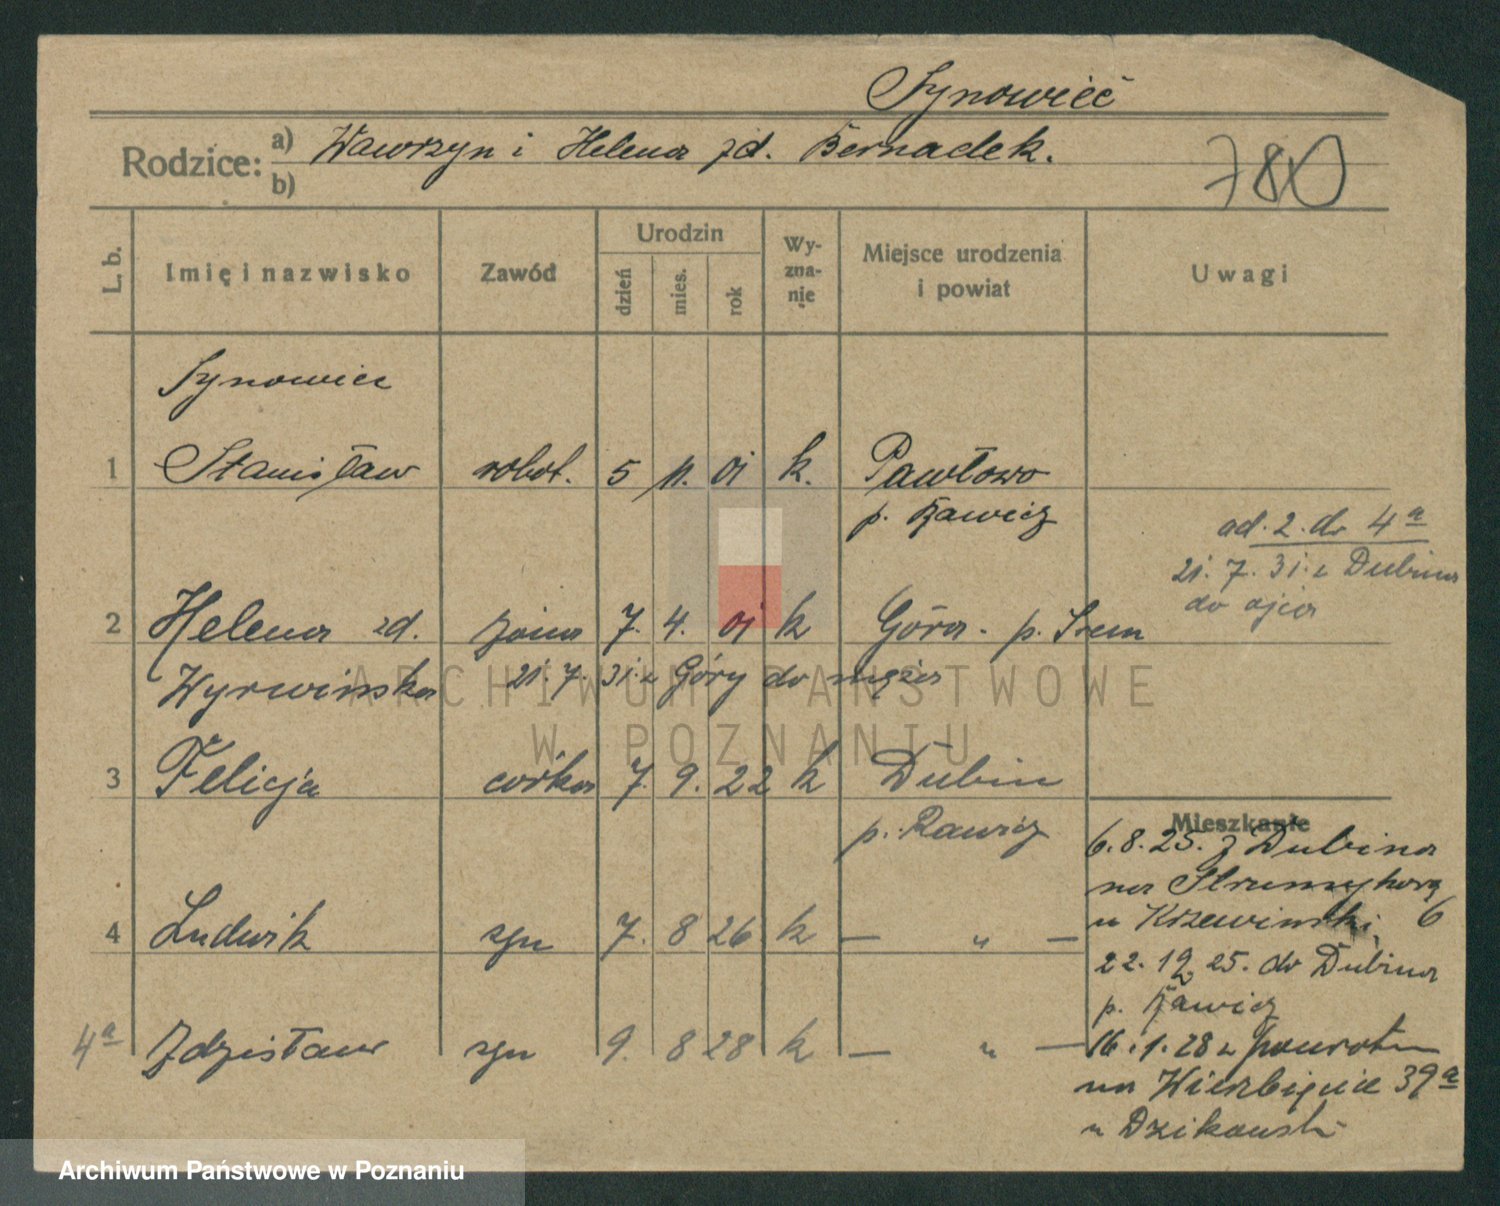 Synowieć
Rodzice: a) Wawrzyn i Helena zd. Bernadek.
b)
780
L. b. Imię i nazwisko Zawód Urodzin dzień mies. rok Wy-zna-nie Miejsce urodzenia i powiat Uwagi
Synowiec
1 Stanisław robot. 5 11. 01 k. Pawłowo
p. Rawicz
ad. 2. do 4a
21. 7. 31. z Dubina
do ojca
2 Helena zd. żona 7. 4. 01 k Góra - p. Śrem
Wyrwińska 21. 7. 31. z Góry do męża
3 Felicja córka 7. 9. 22 k Dubin
p. Rawicz
Mieszkanie
6.8.25. z Dubina
na Strumykową
u Krzewiński 6
4 Ludwik syn 7. 8 26 k — " —
22. 12 25. do Dubina
p. Rawicz
4a Zdzisław syn 9. 8 28 k — " —
16.1.28 z powrotem
na Wierzbięcice 39a
u Dzikowski
ARCHIWUM PAŃSTWOWE
W POZNANIU
Archiwum Państwowe w Poznaniu